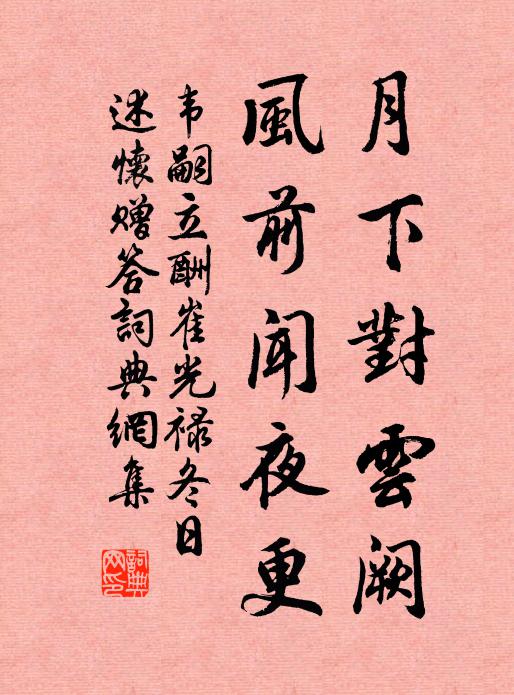 月下對雲闕
風前闻夜更
韦嗣立酬崔光禄冬日
述懷赠答詞典網集
詞典
网印